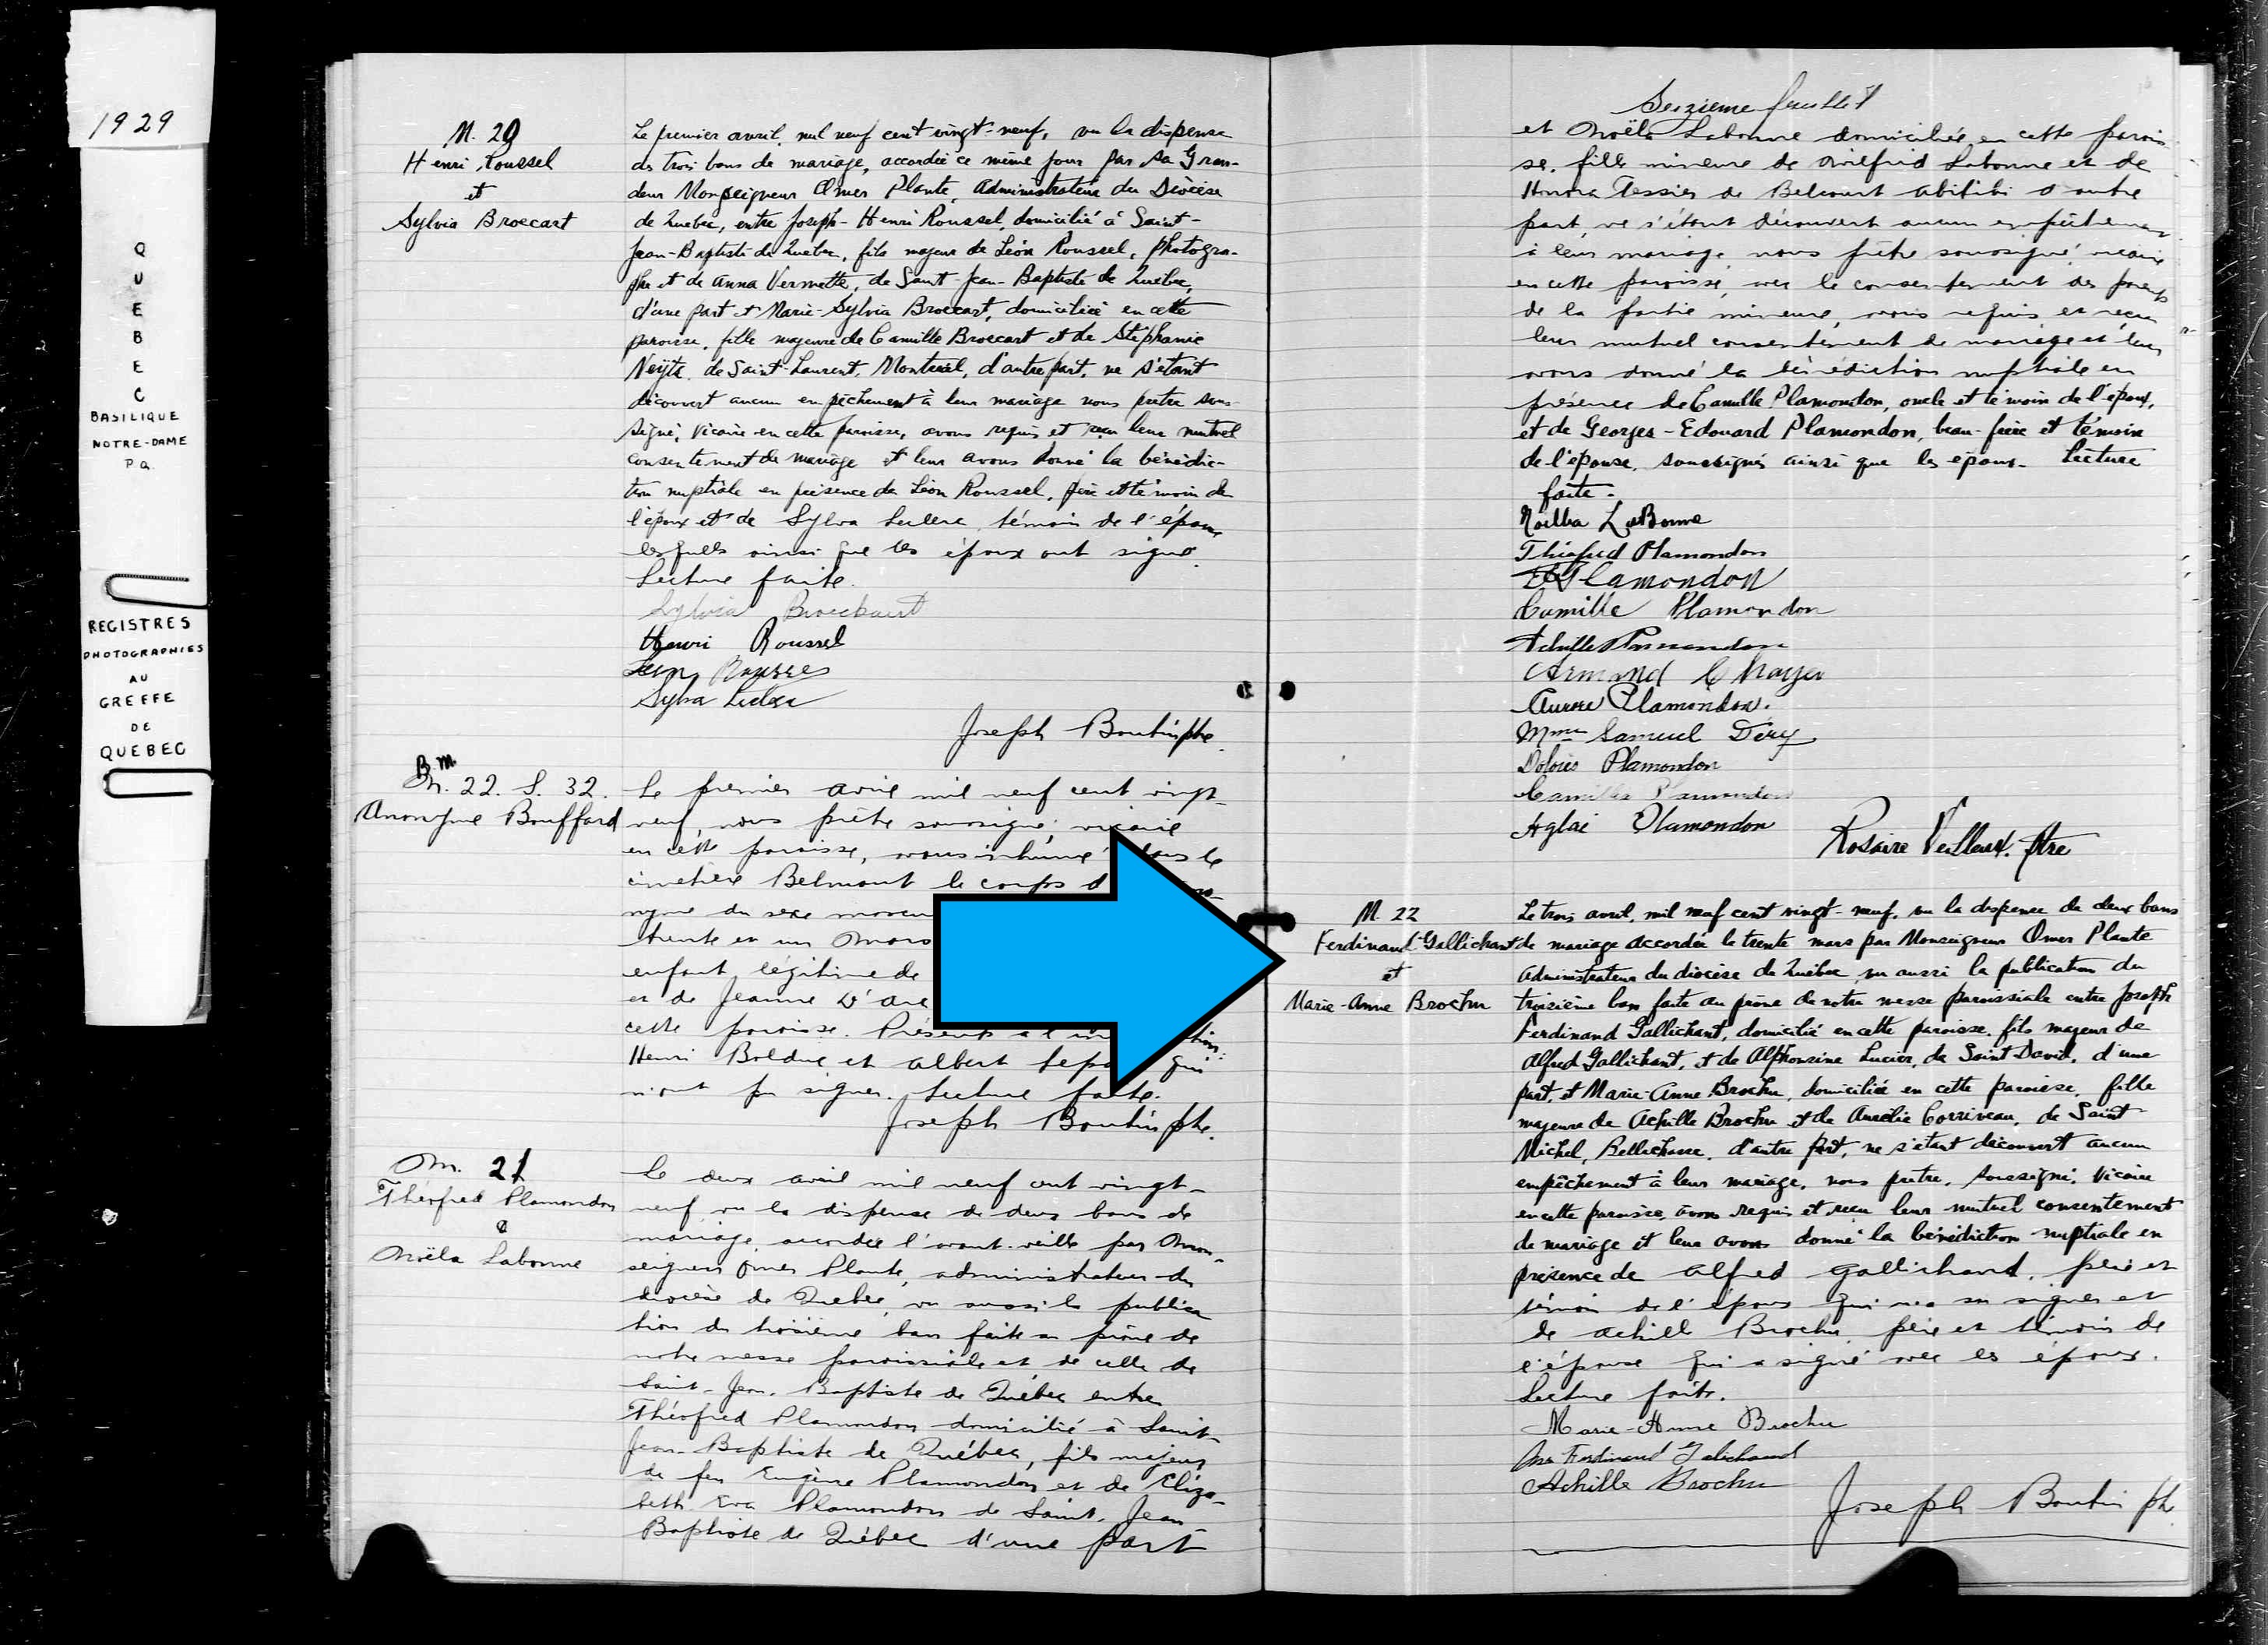 1929
QUEBEC
BASILIQUE
NOTRE-DAME
P.Q.
REGISTRES
PHOTOGRAPHIES
AU
GREFFE
DE
QUEBEC
M. 20
Henri Roussel
et
Sylvia Broecart
Le premier avril, mil neuf cent vingt-neuf, vu la dispense
de trois bans de mariage, accordée ce même jour par Sa Gran-
deur Monseigneur Omer Plante, Administrateur du Diocèse
de Québec, entre Joseph-Henri Roussel, domicilié à Saint-
Jean-Baptiste de Québec, fils majeur de Léon Roussel, photogra-
phe et de Anna Vermette, de Saint-Jean-Baptiste de Québec,
d'une part et Marie-Sylvia Broecart, domiciliée en cette
paroisse, fille majeure de Camille Broecart et de Stéphanie
Neyts, de Saint-Laurent, Montréal, d'autre part, ne s'étant
découvert aucun empêchement à leur mariage nous prêtre sous-
signé, vicaire en cette paroisse, avons requis et reçu leur mutuel
consentement de mariage et leur avons donné la bénédic-
tion nuptiale en présence de Léon Roussel, père et témoin de
l'époux et de Sylva Leclerc témoin de l'épouse
lesquels ainsi que les époux ont signé.
Lecture faite.
Sylvia Broeckaert
Henri Roussel
Léon Roussel
Sylva Leclerc
Joseph Boutin ptre.
B m.
22. S. 32.
Anonyme Bouffard
Le premier avril mil neuf cent vingt-
neuf, nous prêtre soussigné, vicaire
en cette paroisse, avons inhumé dans le
cimetière Belmont le corps d
nyme du sexe
trente et un Mars
enfant légitime de
et de Jeanne D'arc
cette paroisse. Présents à l'in tion:
Henri Bolduc et Albert qui
n'ont pu signer. Lecture faite.
Joseph Boutin ptre.
M. 21
Théofred Plamondon
&
Noëla Labonne
Le deux avril mil neuf cent vingt-
neuf, vu la dispense de deux bans de
mariage, accordée l'avant-veille par Mon-
seigneur Omer Plante, administrateur du
diocèse de Québec, vu aussi la publica
tion du troisième ban faite au prône de
notre messe paroissiale et de celle de
Saint-Jean-Baptiste de Québec entre
Théofred Plamondon domicilié à Saint-
Jean-Baptiste de Québec, fils majeur
de feu Eugène Plamondon et de Eliza-
beth Eva Plamondon de Saint-Jean-
Baptiste de Québec d'une part
Seizieme feuillet
et Noëla Labonne domiciliée en cette parois
se, fille mineure de Wilfrid Labonne et de
Honora Tessier de Belcourt Abitibi d'autre
part, ne s'étant découvert aucun empêchement
à leur mariage, nous prêtre soussigné, vicaire
en cette paroisse, avec le consentement des parents
de la partie mineure, avons requis et reçu
leur mutuel consentement de mariage et leur
avons donné la bénédiction nuptiale en
présence de Camille Plamondon, oncle et témoin de l'époux,
et de Georges-Edouard Plamondon, beau-frère et témoin
de l'épouse, soussignés ainsi que les époux. Lecture
faite.
Noëlla LaBonne
Plamondon
Plamondon
Camille Plamondon
Achille Plamondon
Armand
Aurore Plamondon.
Mme Samuel Déry
Dolorès Plamondon
Camille Plamondon
Aglaé Plamondon
Rosaire Veilleux. Ptre
M 22
Ferdinand Gallichant
et
Marie-Anne Brochu
Le trois avril, mil neuf cent vingt-neuf, vu la dispense de deux bans
de mariage accordée le trente mars par Monseigneur Omer Plante
Administrateur du diocèse de Québec vu aussi la publication du
troisième ban faite au prône de notre messe paroissiale entre Joseph
Ferdinand Gallichant, domicilié en cette paroisse, fils majeur de
Alfred Gallichant, et de Alphonsine Lucier, de Saint David, d'une
part, et Marie-Anne Brochu, domiciliée en cette paroisse, fille
majeure de Achille Brochu et de Aurélie Corriveau, de Saint
Michel, Bellechasse, d'autre part, ne s'étant découvert aucun
empêchement à leur mariage, nous prêtre, soussigné, vicaire
en cette paroisse, avons requis et reçu leur mutuel consentement
de mariage et leur avons donné la bénédiction nuptiale en
présence de Alfred Gallichand, père et
témoin de l'époux qui n'a su signer et
de Achill Brochu, père et témoin de
l'épouse qui a signé avec les époux.
Lecture faite.
Marie-Anne Brochu
Ferdinand Galichand
Achille Brochu
Joseph Boutin ptr.